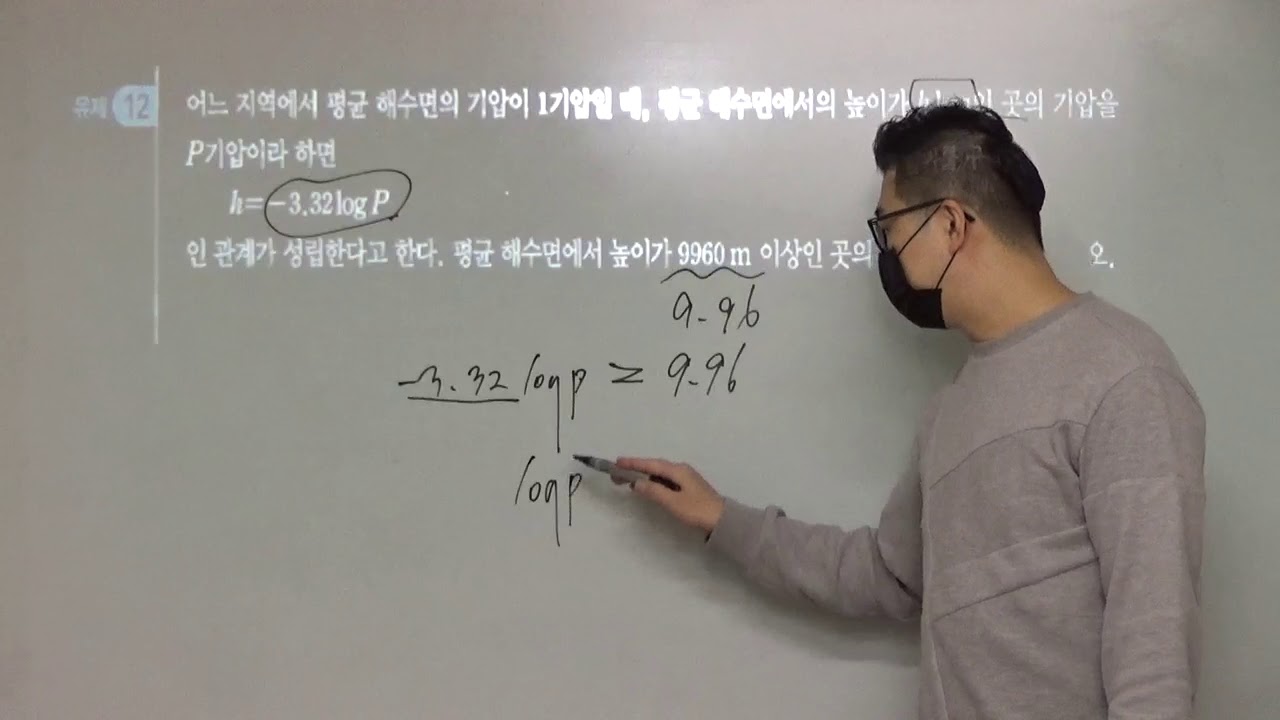 유제 12 어느 지역에서 평균 해수면의 기압이 1기압일 때, 평균 해수면에서의 높이가 곳의 기압을
P기압이라 하면
h=-3.32 log P
인 관계가 성립한다고 한다. 평균 해수면에서 높이가 9960 m 이상인 곳의 오.
9.96
-3.32 log p ≥ 9.96
log p